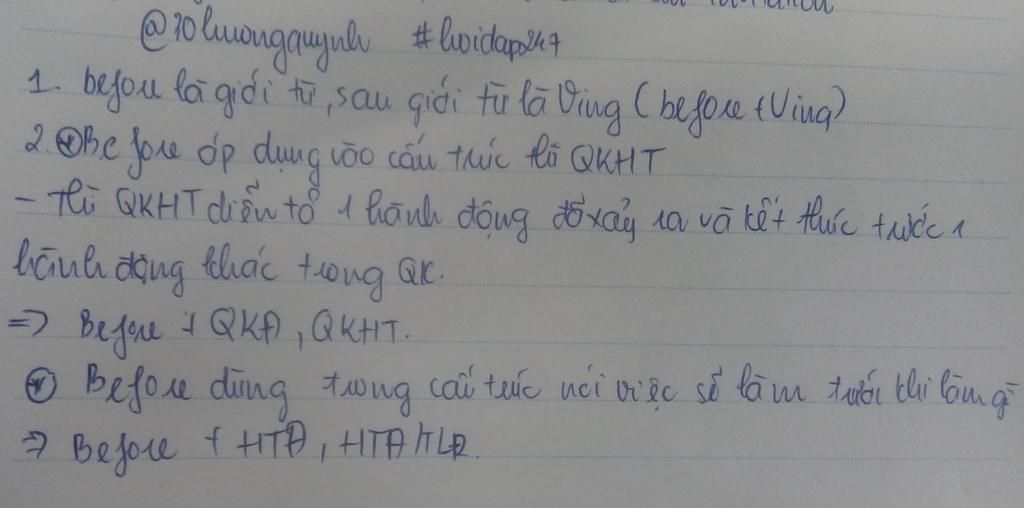 @10luongquynh #hoidap247
1. before là giới từ, sau giới từ là Ving (before + Ving)
2. ⊛ Before áp dụng vào cấu trúc thì QKHT
- thì QKHT diễn tả 1 hành động đã xảy ra và kết thúc trước 1
hành động khác trong QK.
=> Before + QKĐ, QKHT.
⊛ Before dùng trong cấu trúc nói việc sẽ làm trước khi làm gì
=> Before + HTĐ, HTĐ/TLĐ.